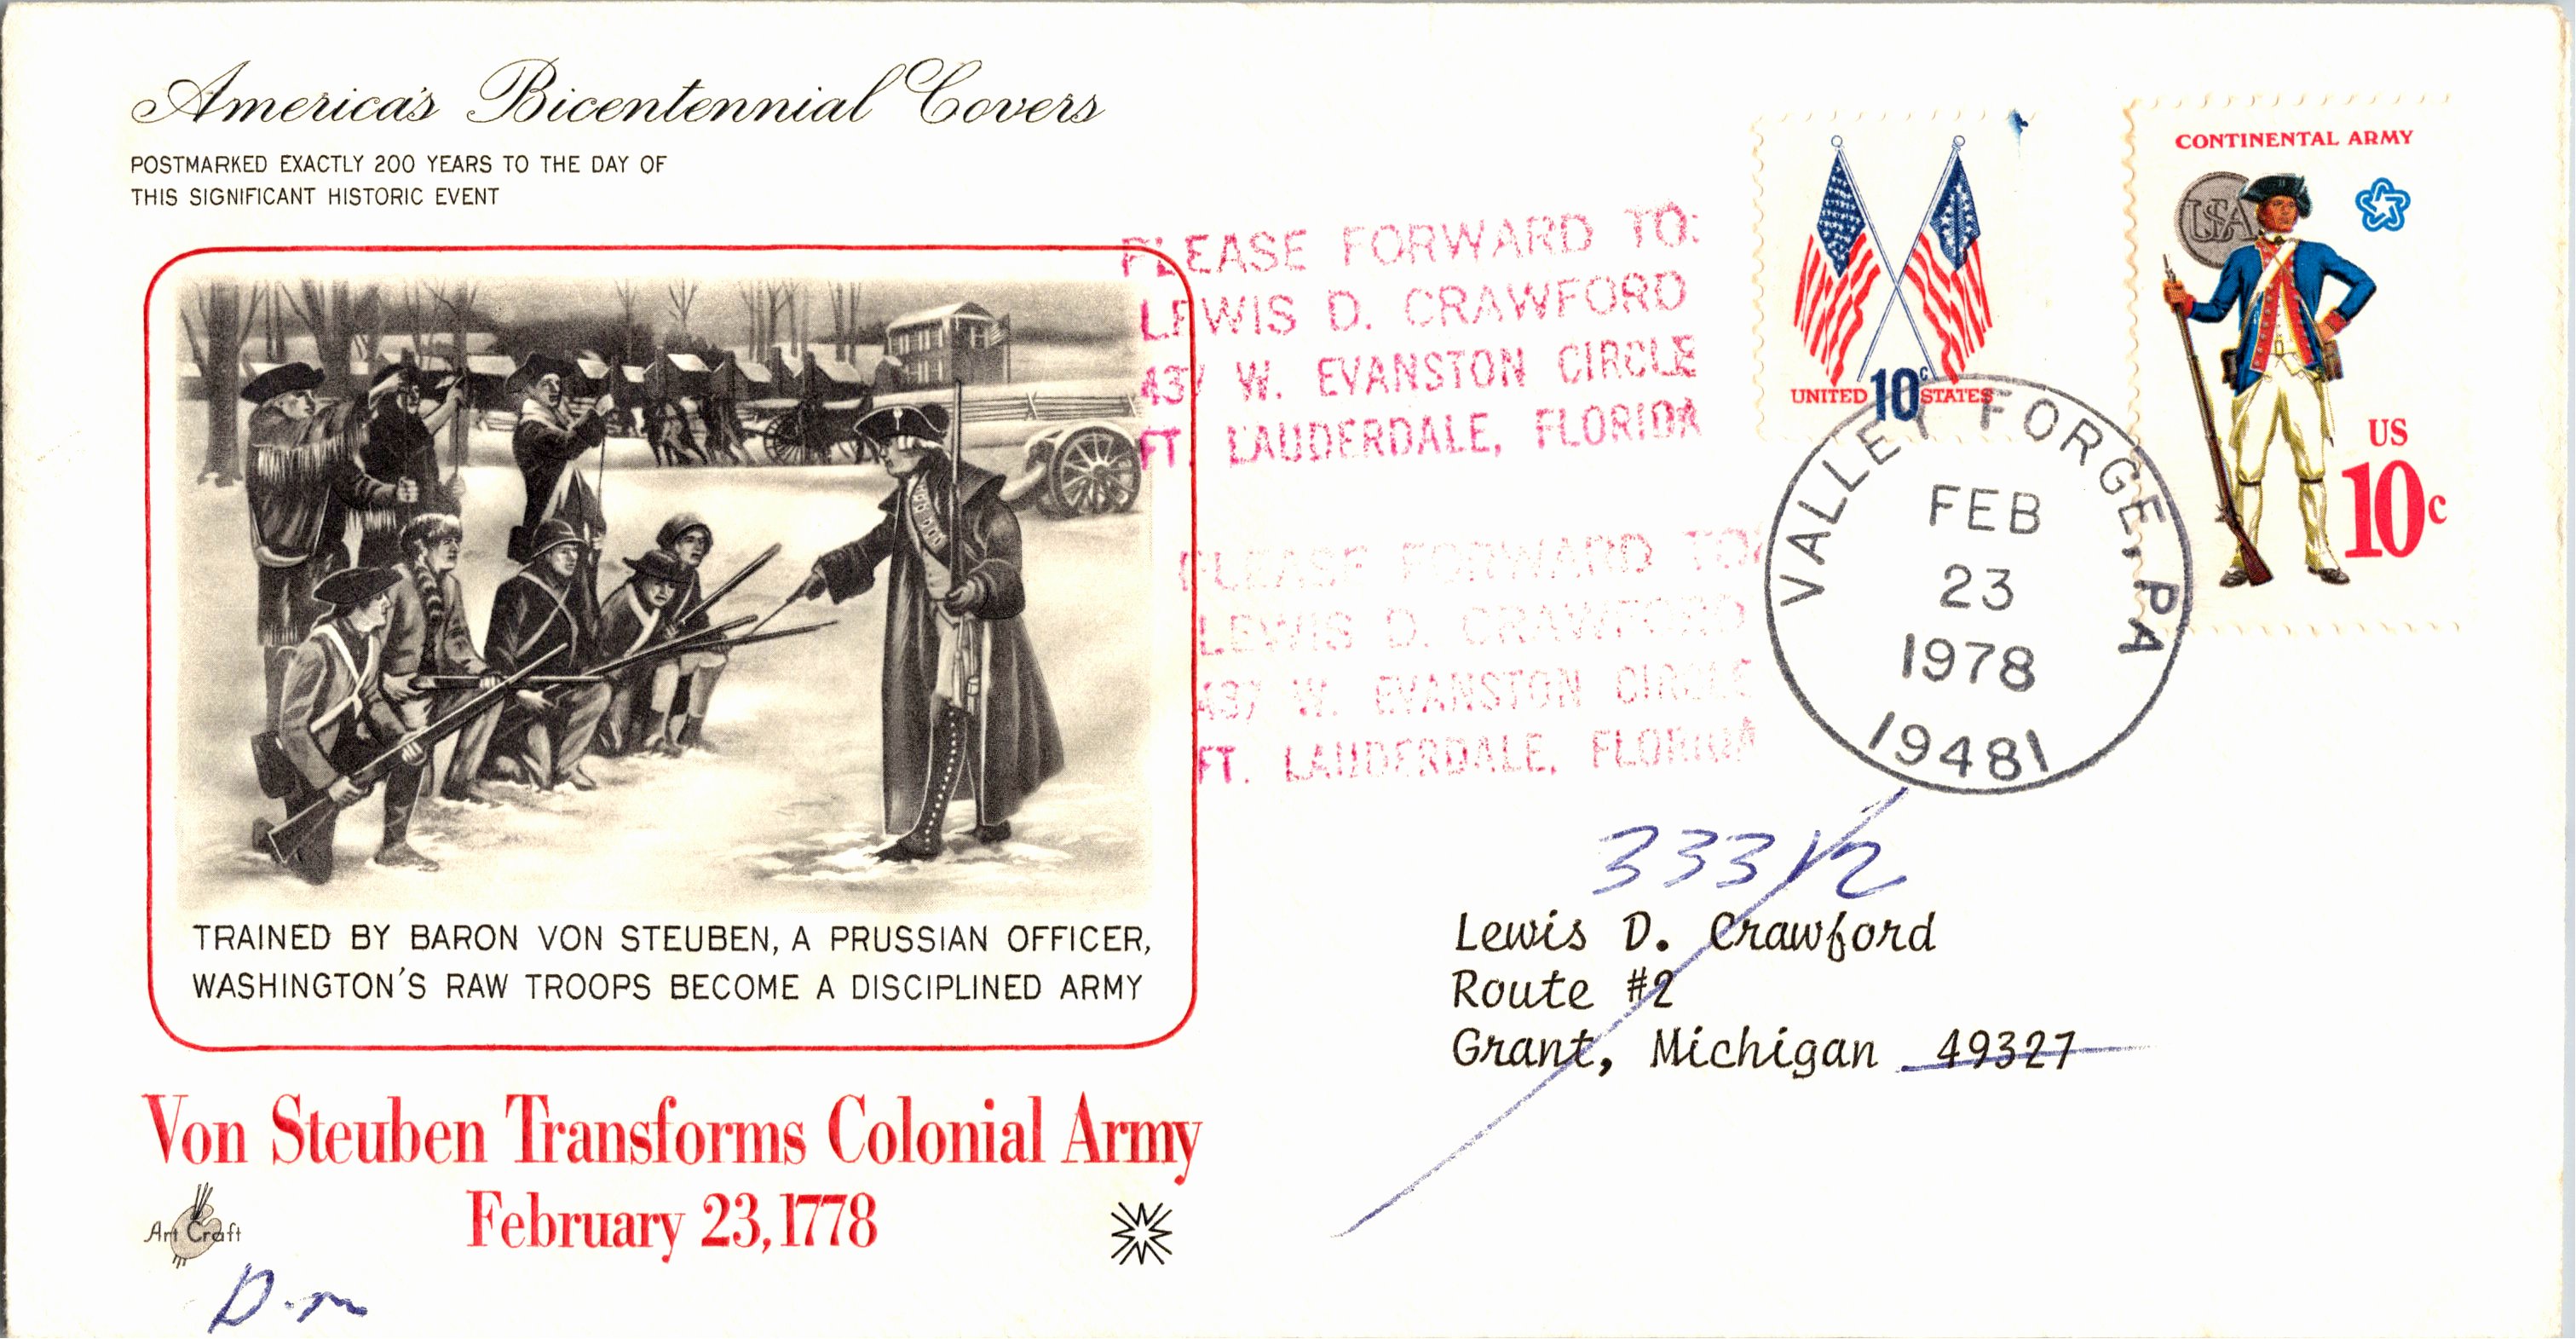 America's Bicentennial Covers
POSTMARKED EXACTLY 200 YEARS TO THE DAY OF
THIS SIGNIFICANT HISTORIC EVENT
TRAINED BY BARON VON STEUBEN, A PRUSSIAN OFFICER,
WASHINGTON'S RAW TROOPS BECOME A DISCIPLINED ARMY
Von Steuben Transforms Colonial Army
February 23, 1778
Art Craft
PLEASE FORWARD TO:
LEWIS D. CRAWFORD
437 W. EVANSTON CIRCLE
FT. LAUDERDALE, FLORIDA
PLEASE FORWARD TO:
LEWIS D. CRAWFORD
437 W. EVANSTON CIRCLE
FT. LAUDERDALE, FLORIDA
UNITED 10c STATES
CONTINENTAL ARMY
USA
US
10c
VALLEY FORGE, PA
FEB
23
1978
19481
33312
Lewis D. Crawford
Route #2
Grant, Michigan 49327